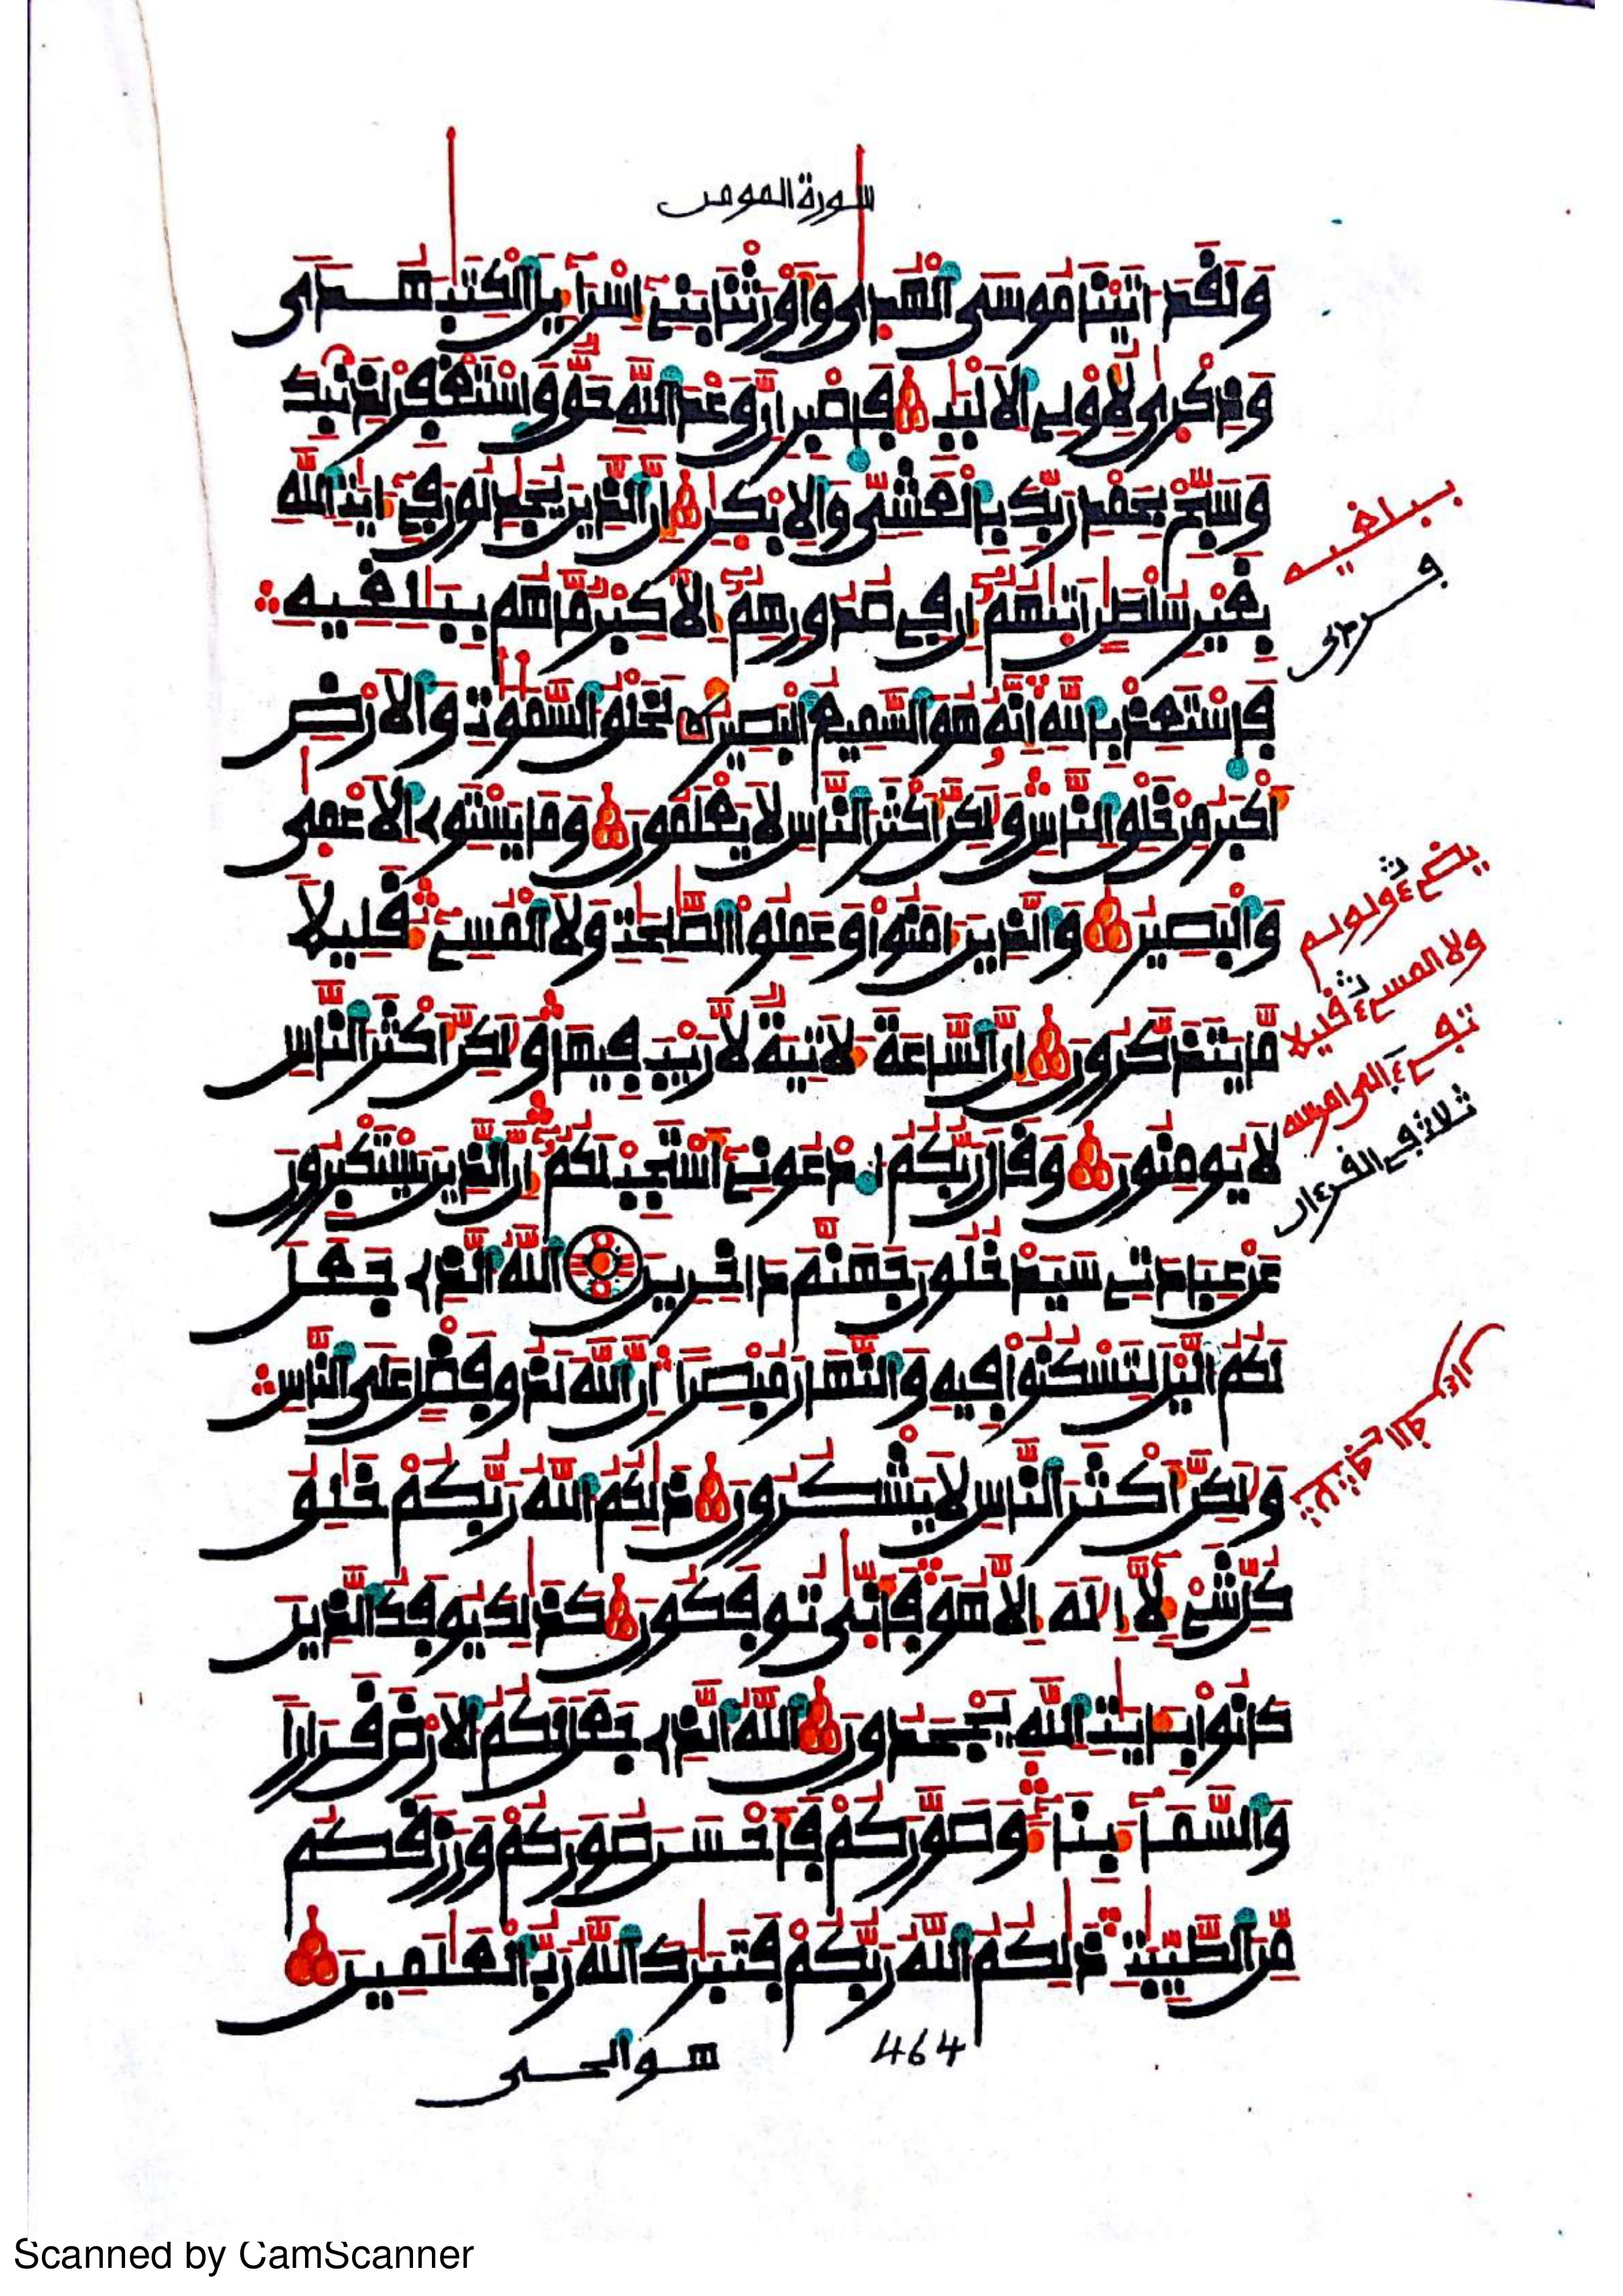 سورة المومن
وَلَقَدَ اتَيْنَا مُوسَى اَلْهُدَىٰ وَأَوْرَثْنَا بَنِےٓ إِسْرَآءِيلَ اَلْكِتَٰبَ هُدىٗ
وَذِكْر۪ىٰ لِأُوْلِے اِلَالْبَٰبِ فَاصْبِرِ اِنَّ وَعْدَ اَللَّهِ حَقّٞ وَاسْتَغْفِرْ لِذَنۢبِكَ
وَسَبِّحْ بِحَمْدِ رَبِّكَ بِالْعَشِيِّ وَالِابْكٰ۪رِ إِنَّ اَلذِينَ يُجَٰدِلُونَ فِےٓ ءَايَٰتِ اِللَّهِ
بِغَيْرِ سُلْطَٰنٍ اَتَيٰ۪هُمُۥٓ إِن فِے صُدُورِهِمُۥٓ إِلَّا كِبْرٞ مَّا هُم بِبَٰلِغِيهِ
فَاسْتَعِذْ بِاللَّهِ إِنَّهُۥ هُوَ اَلسَّمِيعُ اُلْبَصِيرُ لَخَلْقُ اُلسَّمَٰوَٰتِ وَالَارْضِ
أَكْبَرُ مِنْ خَلْقِ اِلنَّاسِ وَلَٰكِنَّ أَكْثَرَ اَلنَّاسِ لَا يَعْلَمُونَ وَمَا يَسْتَوِے اِلَاعْم۪ىٰ
وَالْبَصِيرُ وَالذِينَ ءَامَنُواْ وَعَمِلُواْ اُلصَّٰلِحَٰتِ وَلَا اَلْمُسِےٓءُ قَلِيلاٗ
مَّا يَتَذَكَّرُونَ إِنَّ اَلسَّاعَةَ لَأٓتِيَةٞ لَّا رَيْبَ فِيهَا وَلَٰكِنَّ أَكْثَرَ اَلنَّاسِ
لَا يُومِنُونَ وَقَالَ رَبُّكُمُ اُدْعُونِےٓ أَسْتَجِبْ لَكُمُۥٓ إِنَّ اَلذِينَ يَسْتَكْبِرُونَ
عَنْ عِبَادَتِے سَيَدْخُلُونَ جَهَنَّمَ دَاخِرِينَ اَللَّهُ اُلذِے جَعَلَ
لَكُمُ اُليْلَ لِتَسْكُنُواْ فِيهِ وَالنَّهَارَ مُبْصِراً إِنَّ اَللَّهَ لَذُو فَضْلٍ عَلَى اَلنَّاسِ
وَلَٰكِنَّ أَكْثَرَ اَلنَّاسِ لَا يَشْكُرُونَ ذَٰلِكُمُ اُللَّهُ رَبُّكُمْ خَٰلِقُ
كُلِّ شَےْءٖ لَّآ إِلَٰهَ إِلَّا هُوَ فَأَنّ۪ىٰ تُوفَكُونَ كَذَٰلِكَ يُوفَكُ اُلذِينَ
كَانُواْ بِـَٔايَٰتِ اِللَّهِ يَجْحَدُونَ اَللَّهُ اُلذِے جَعَلَ لَكُمُ اُلَارْضَ قَرَاراٗ
وَالسَّمَآءَ بِنَآءٗ وَصَوَّرَكُمْ فَأَحْسَنَ صُوَرَكُمْ وَرَزَقَكُم
مِّنَ اَلطَّيِّبَٰتِ ذَٰلِكُمُ اُللَّهُ رَبُّكُمْ فَتَبَٰرَكَ اَللَّهُ رَبُّ اُلْعَٰلَمِينَ
464
هو الحى
ببلغيه
ولا المسےء قليلا
ثلاثة في القرءان
Scanned by CamScanner